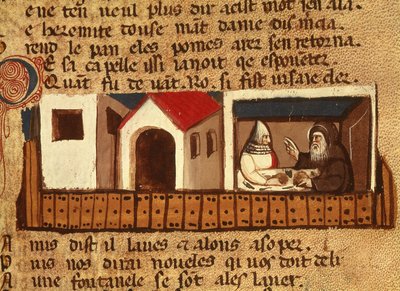 eue ten neul plus dir acist mot sen ala.
e heremite touse mãt dame dis mela
rend le pan eles pomes arer sen retorna.
E sa capelle issi ianoit qe espouerter
Quãt fu deuãt Ro. si fist uisaie der.
Amis dist il laues ⁊ alons asoper.
Puis nos dirai noueles qi uos doit deli
A une fontanele se sot ales lauer.